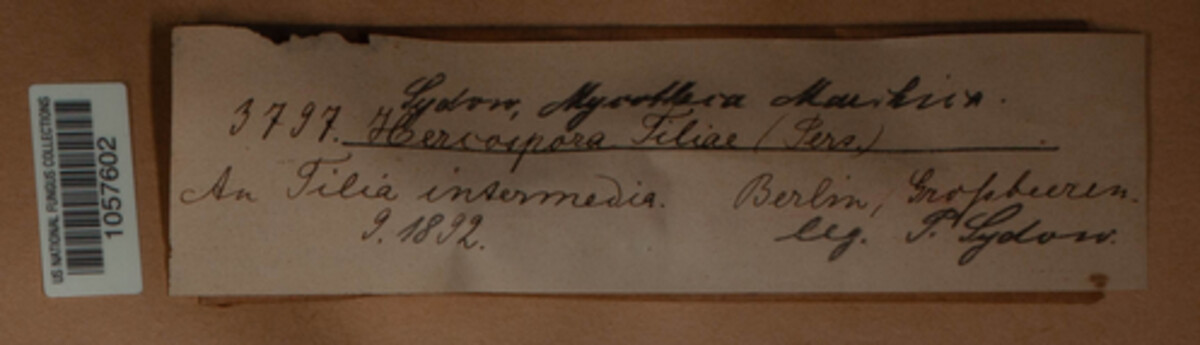 US NATIONAL FUNGUS COLLECTIONS
1057602
Sydow, Mycotheca Marchica.
3797. Hercospora Tiliae (Pers.)
An Tilia intermedia. Berlin, Großbeeren.
9. 1892. leg. P. Sydow.